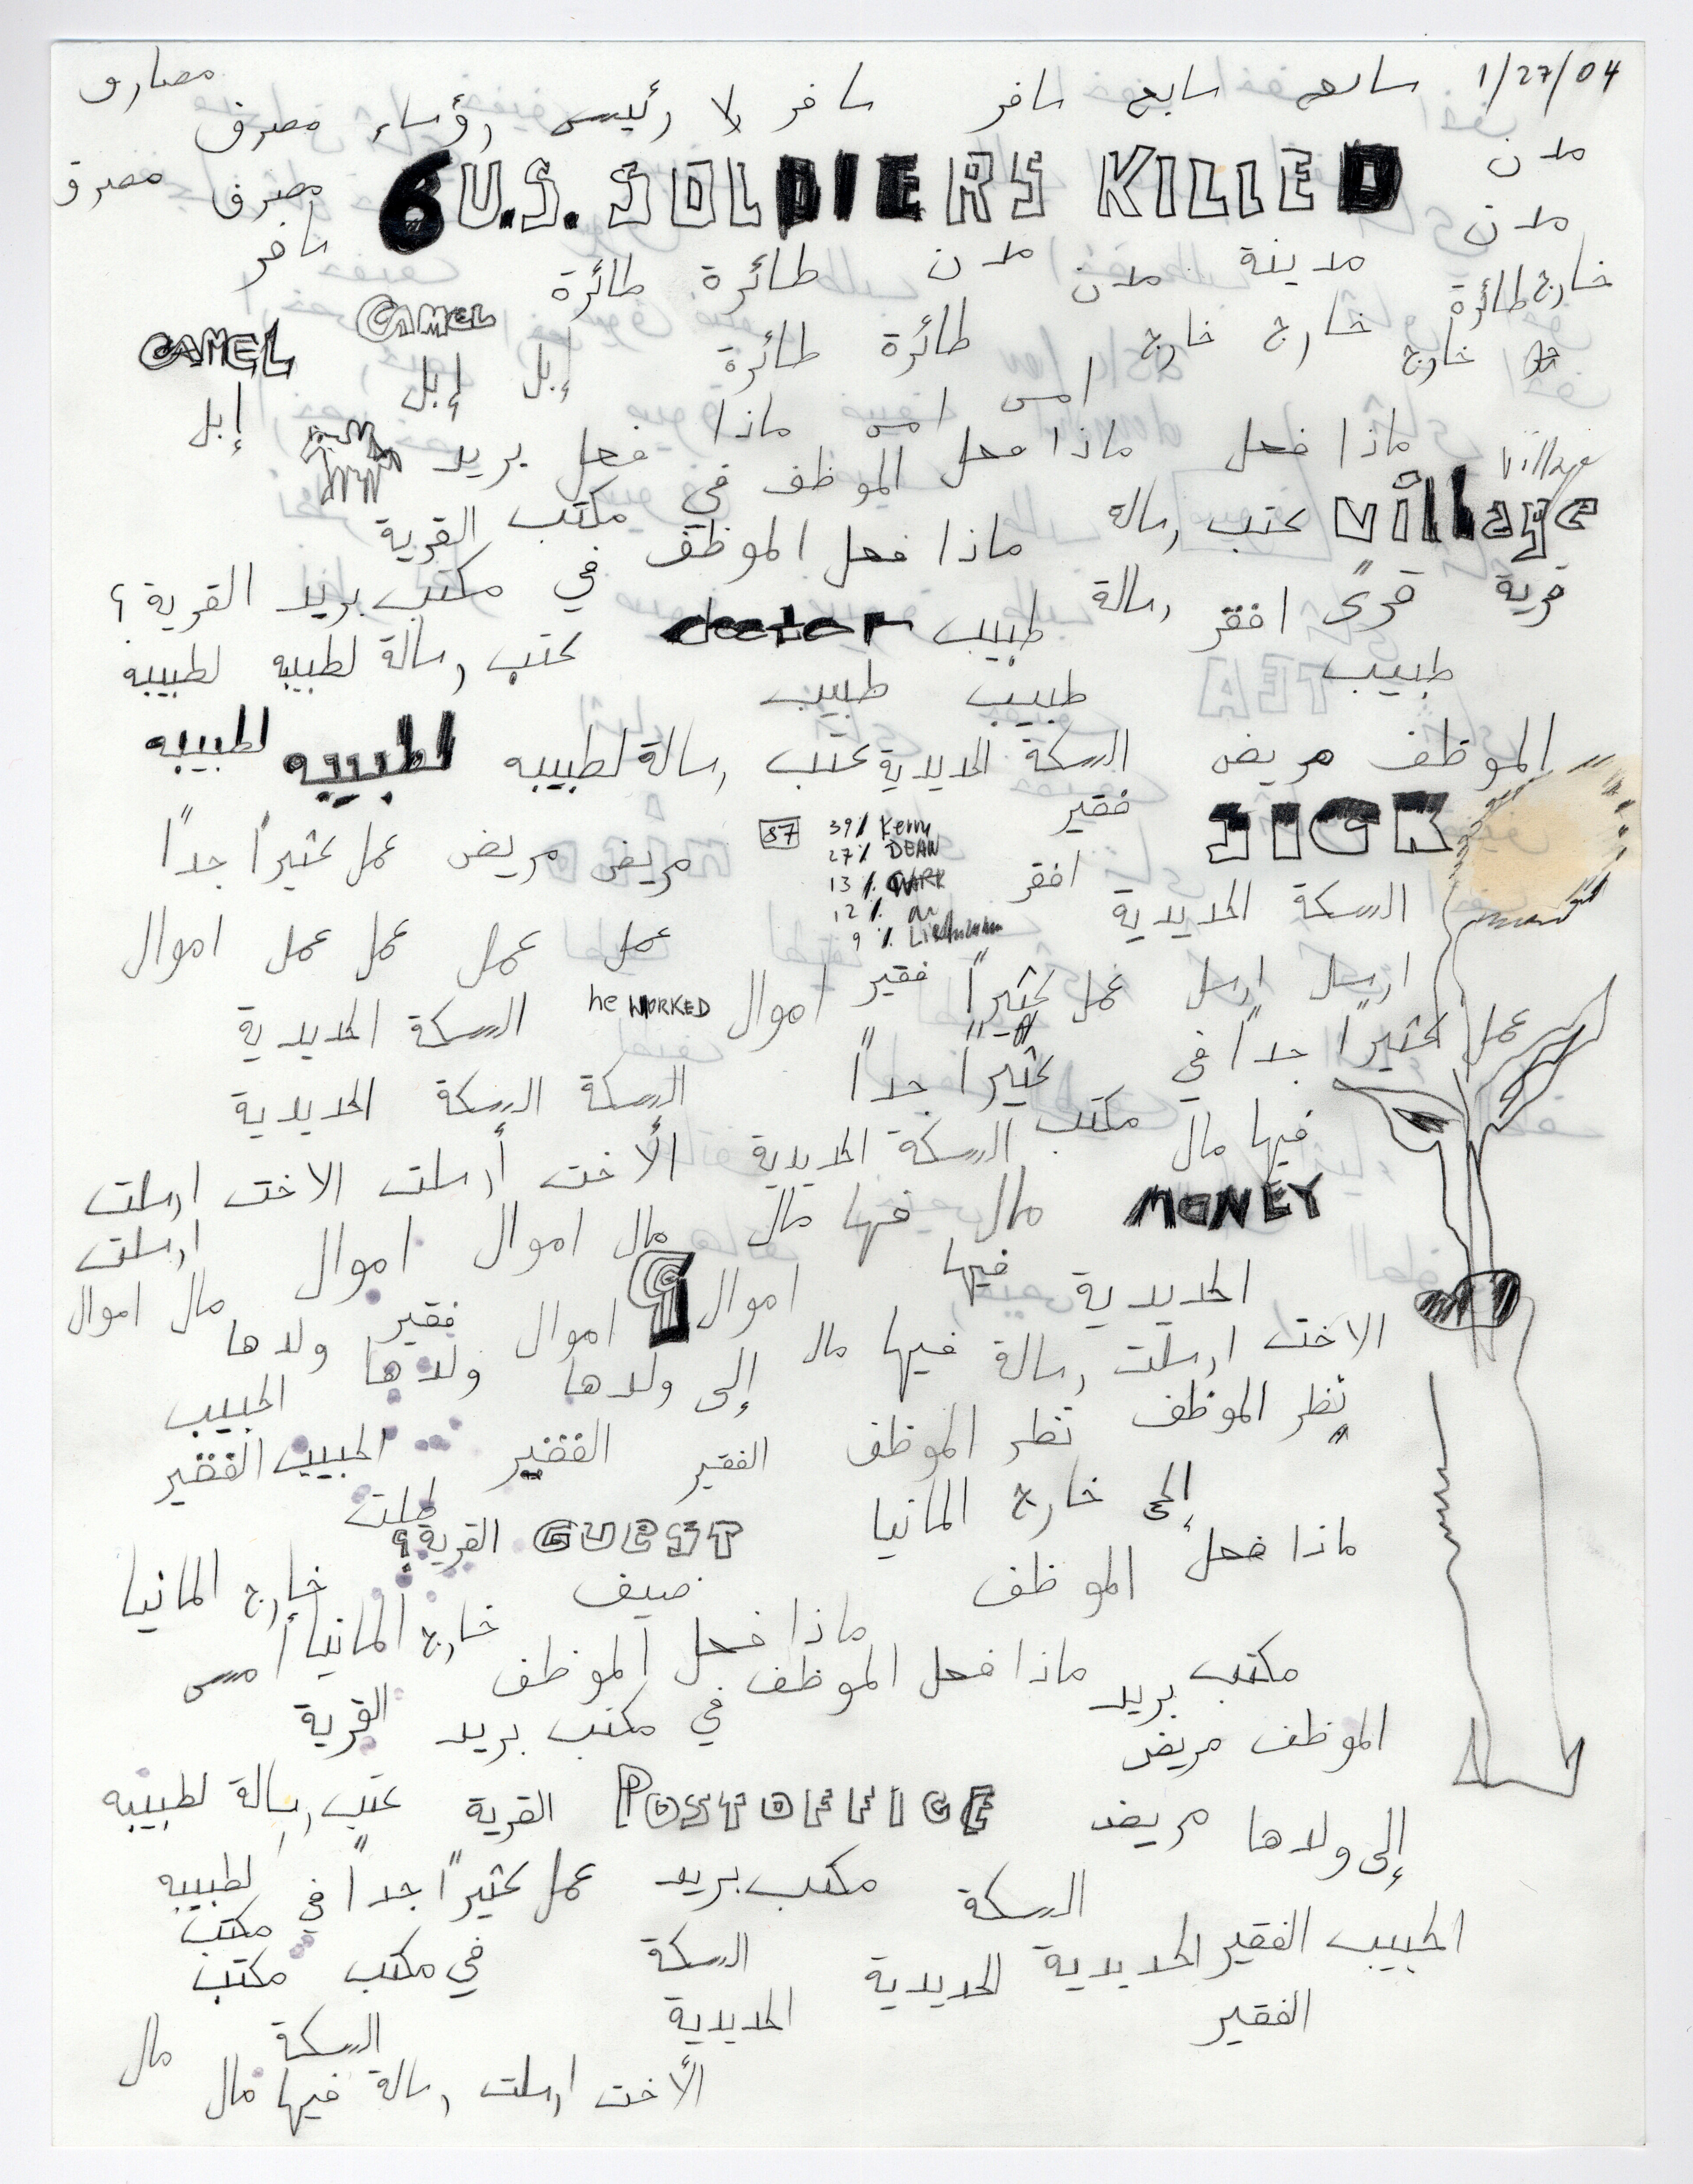 1/27/04 سابع سافر سافر لا رئيس رؤساء مصرف مصارف
مدن 6 U.S. SOLDIERS KILLED مصرف مصرف
مدن سافر
خارج طائرة مدينة مدن مدن طائرة طائرة CAMEL
خارج خارج خارج طائرة طائرة إبل إبل CAMEL
امس امس إبل
ماذا فعل ماذا فعل ماذا فعل بريد
village
village كتب رسالة الموظف في مكتب القرية
ماذا فعل الموظف في مكتب بريد القرية؟
قرية قرىً افقر رسالة طبيب كتب رسالة لطبيبه لطبيبه
طبيب طبيب طبيب
الموظف مريض السكة الحديدية كتب رسالة لطبيبه لطبيبه لطبيبه
SICK فقير
87 39% Kerry
27% DEAN
13%
12%
9%
افقر مريض مريض عمل كثيراً جداً
السكة الحديدية عمل عمل عمل عمل اموال
ارسل ارسل عمل كثيراً فقير اموال he WORKED السكة الحديدية
عمل كثيراً جداً في كثيراً جداً السكة السكة الحديدية
فيها مال مكتب السكة الحديدية الأخت أرسلت الاخت ارسلت
MONEY مال فيها مال مال اموال اموال ارسلت
الحديدية فيها اموال اموال فقير مال اموال
الاخت ارسلت رسالة فيها مال إلى ولدها ولدها ولدها
الحبيب
نظر الموظف نظر الموظف الفقير الفقير الحبيب الفقير
إلى خارج المانيا GUEST القرية؟
ماذا فعل الموظف ضيف خارج المانيا
ماذا فعل الموظف خارج المانيا أمس
مكتب بريد ماذا فعل الموظف في مكتب بريد القرية
الموظف مريض
إلى ولدها مريض POSTOFFICE القرية كتب رسالة لطبيبه
السكة مكتب بريد عمل كثيراً جداً في لطبيبه
مكتب
الحبيب الفقير الحديدية الحديدية السكة في مكتب مكتب
الفقير الحديدية السكة مال
الأخت ارسلت رسالة فيها مال